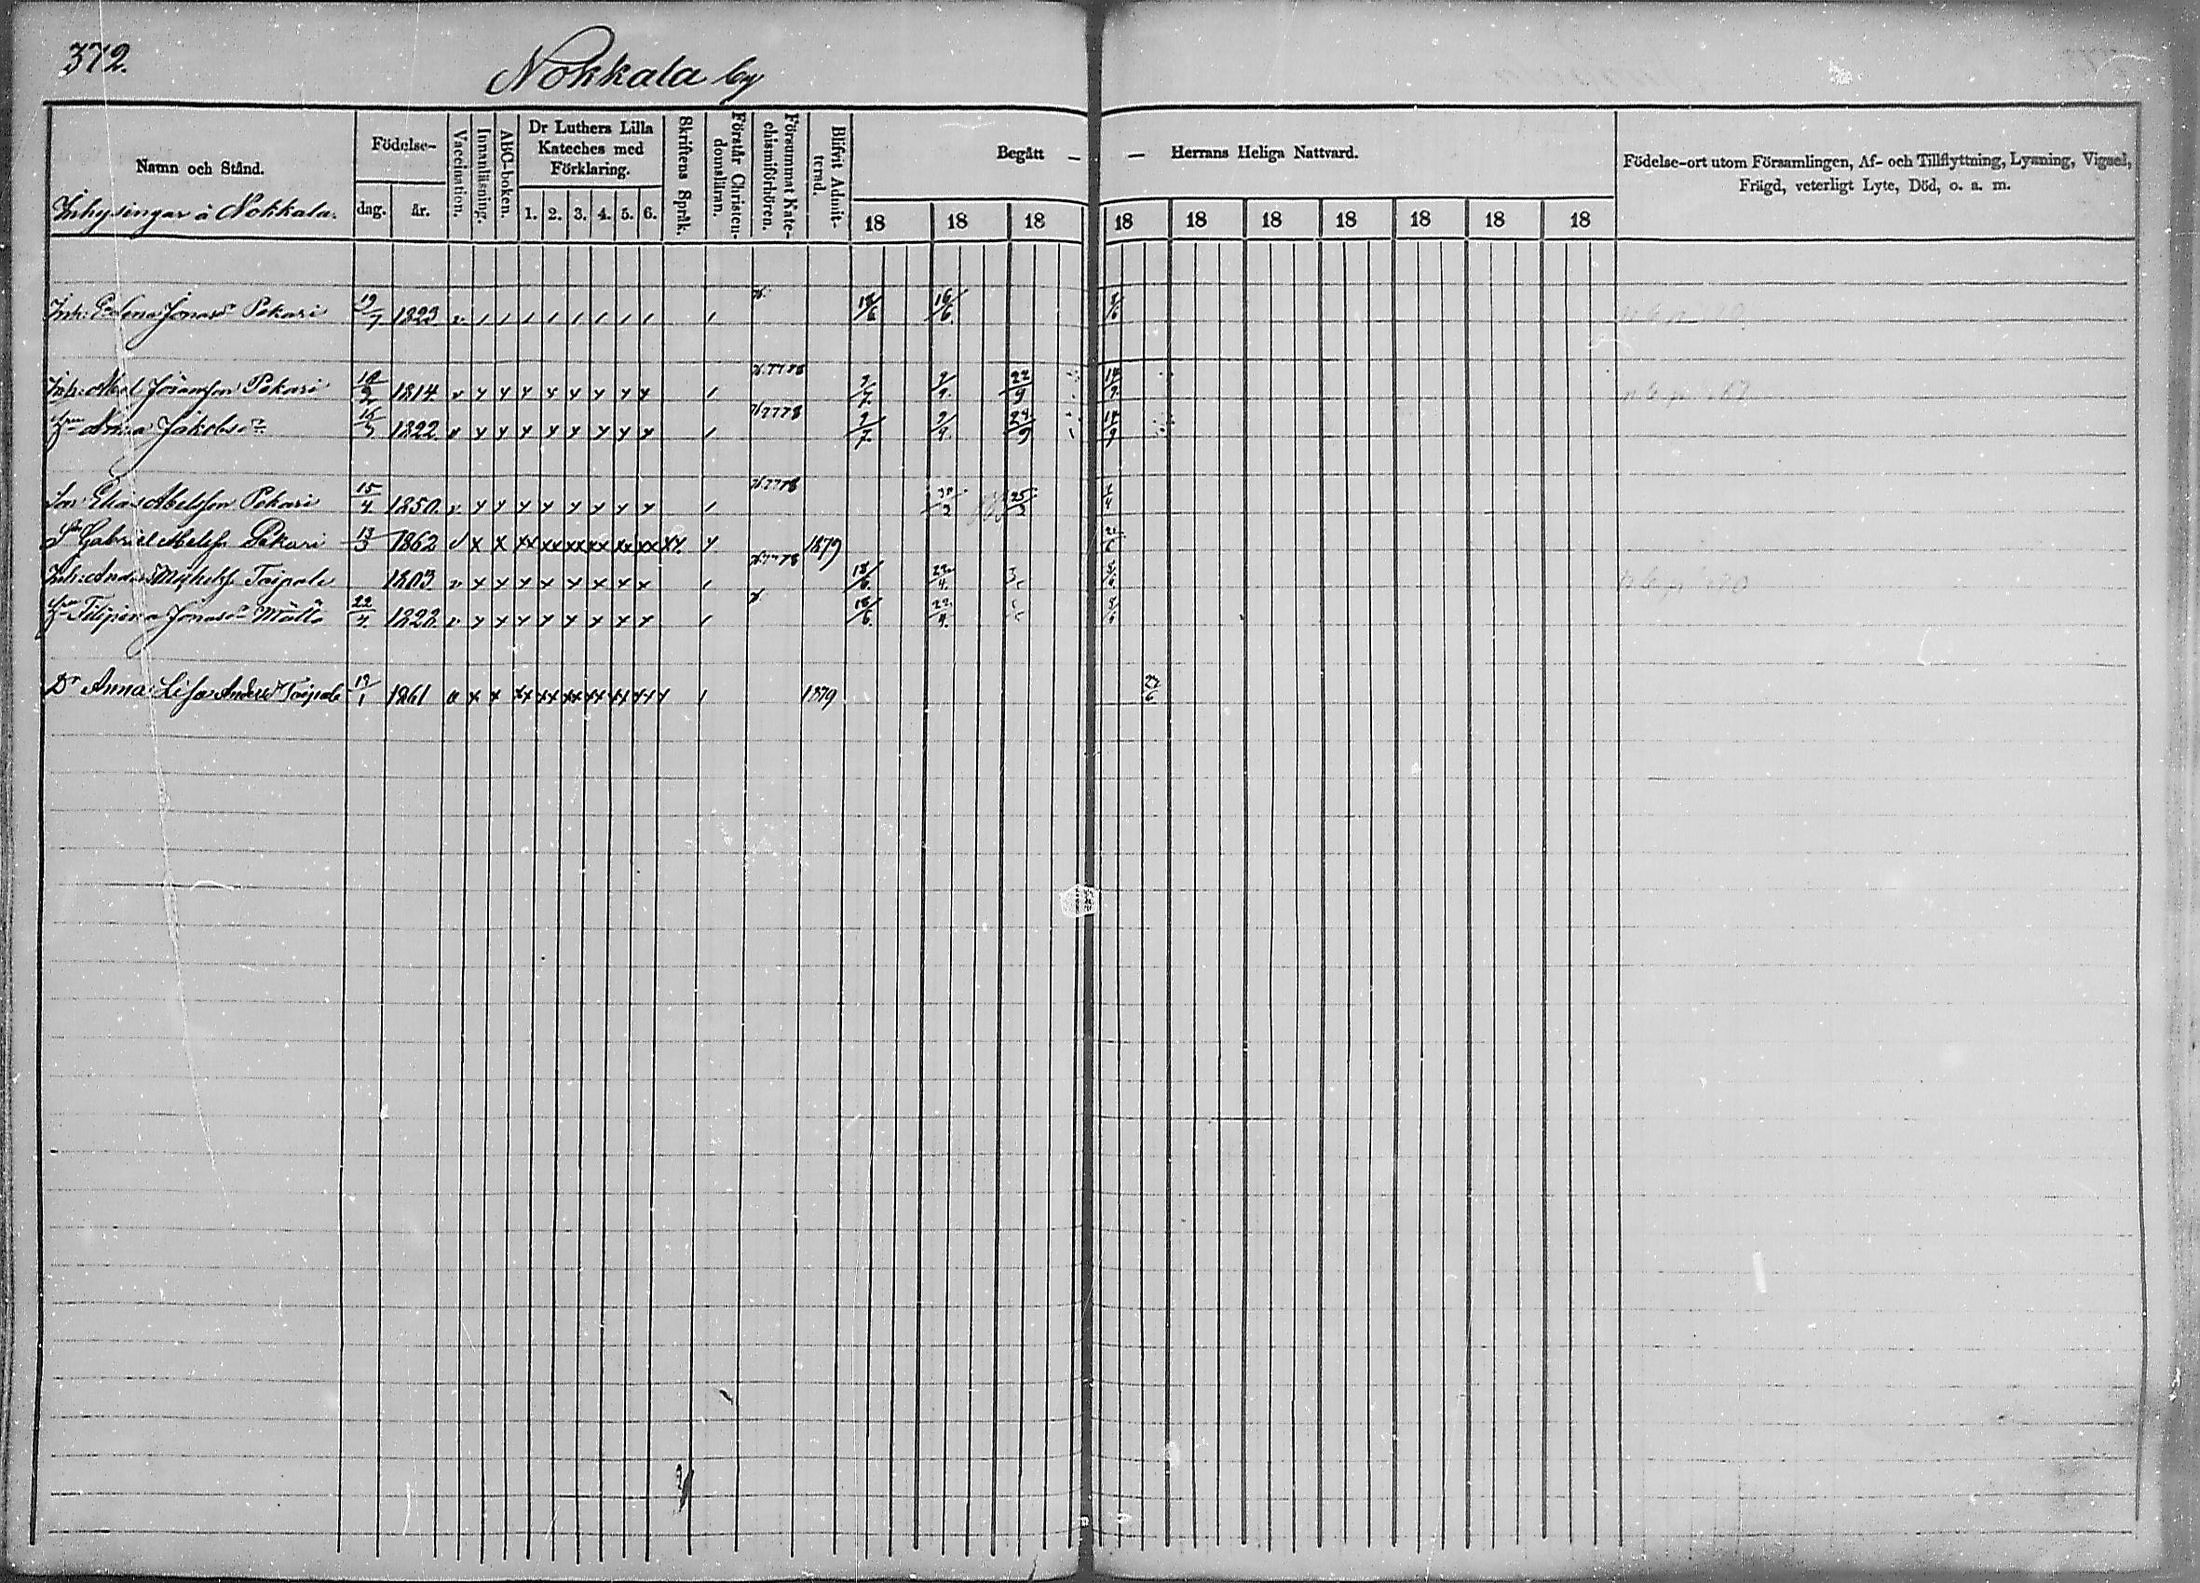 372.
Nokkala by
Namn och Stånd.
Födelse-
dag.
år.
Vaccination.
Innanläsning.
ABC-boken.
Dr Luthers Lilla Kateches med Förklaring.
1. 2. 3. 4. 5. 6.
Skriftens Språk.
Förstår Christen-domsläran.
Försummat Kate-chismiförhören.
Blifvit Admit-terad.
Begått — — Herrans Heliga Nattvard.
18 18 18 18 18 18 18 18 18 18
Födelse-ort utom Församlingen, Af- och Tillflyttning, Lysning, Vigsel,
Frägd, veterligt Lyte, Död, o. a. m.
Inhysingar å Nokkala.
Inh: Jonasdr Pekari 19/7 1823 v / / / / / / / / / 18/6 16/6
Inh: Abel Pekari 1814 v y y y y y y y y / 7778 9/7 9/9 22/9
Anna Jakobsdr 1822 v y y y y y y y y / 7778 9/7 9/9
Son Elias Abelsson Pekari 15/4 1850 v y y y y y y y y / 7778 25/2
Sn Gabriel Abelss Pekari 13/3 1862 v x x xx xx xx xx xx xx xx. y 1879
Inh: Anders Michelss Taipale 1803 v x x x x x x x x / 18/6
Filipina Jonasdr Mältö 22/4 1822 v y y y y y y y y / 18/6 22/4
Dr Anna Lisa Andersdr Taipale 1861 v x x xx xx xx xx xx / 1879